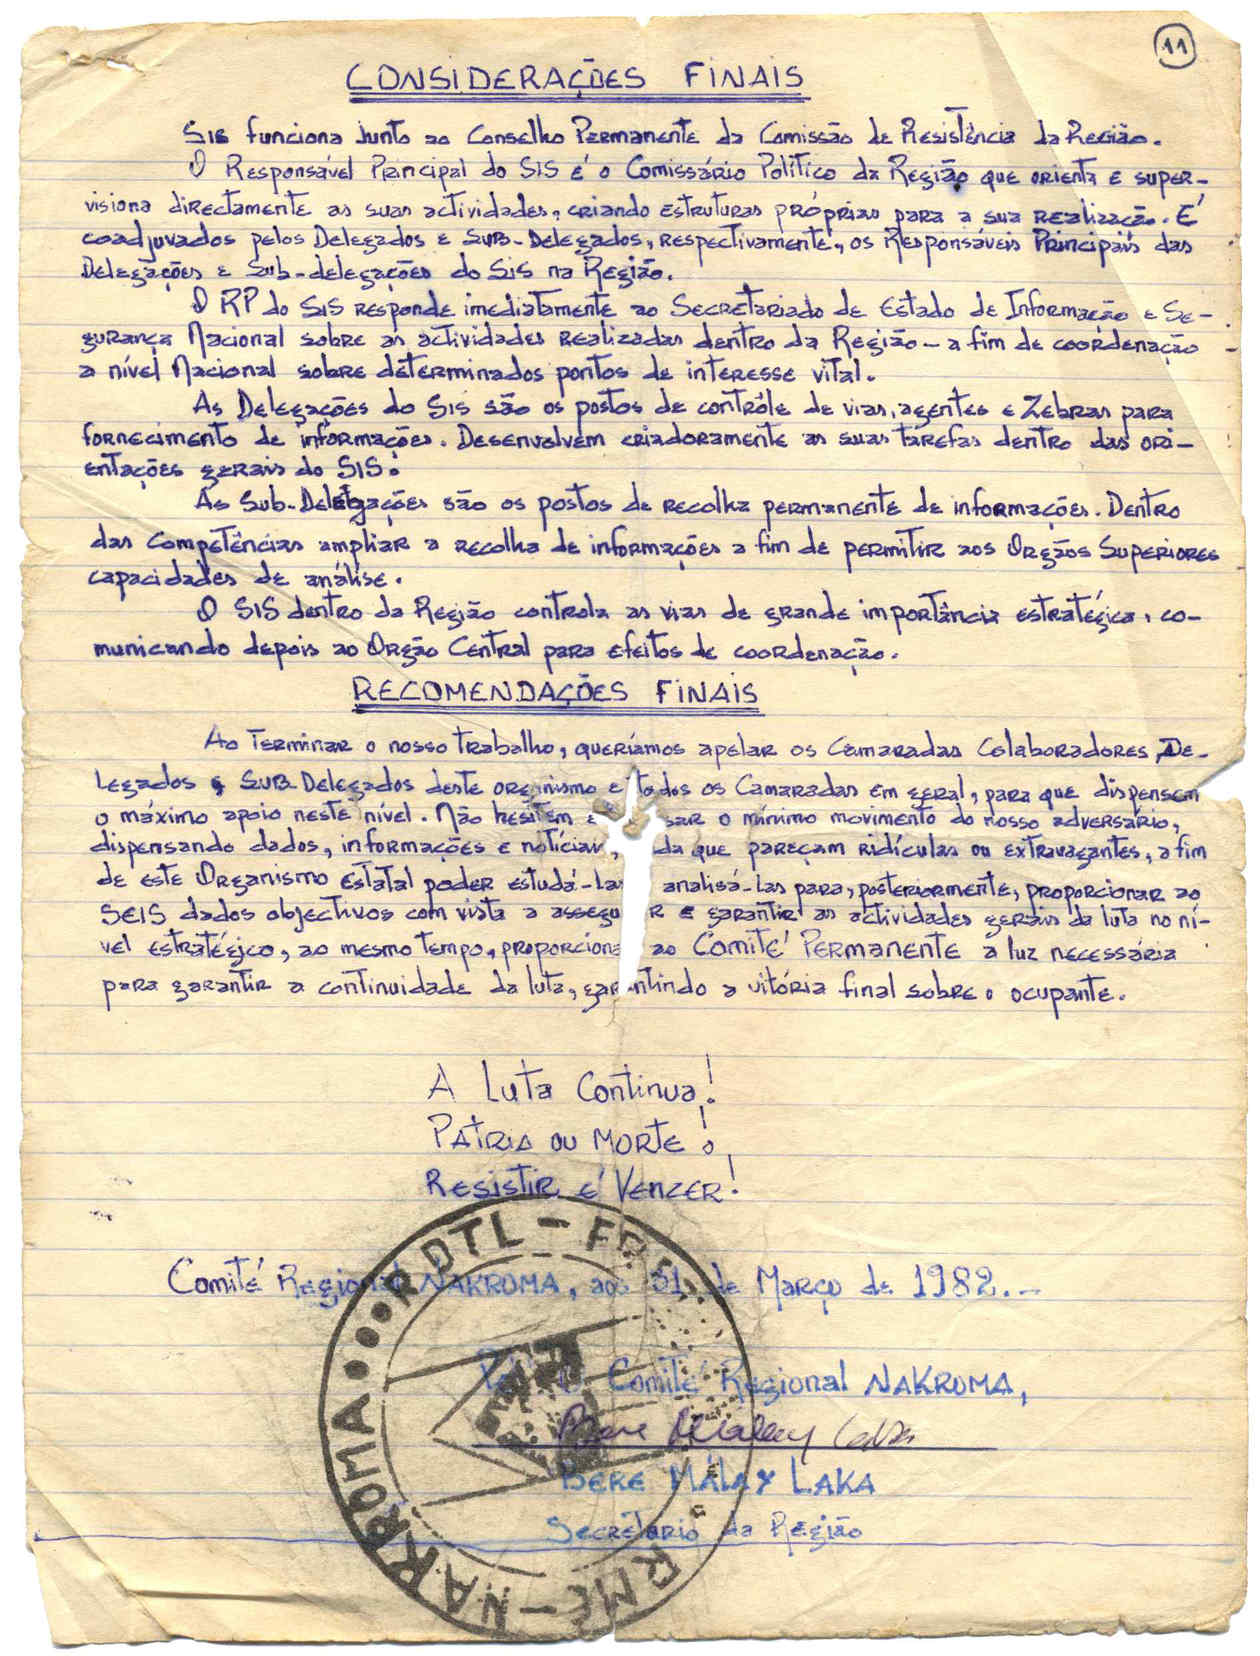 11
CONSIDERAÇÕES FINAIS
SIS funciona junto ao Conselho Permanente da Comissão de Resistência da Região.
O Responsável Principal do SIS é o Comissário Político da Região que orienta e super-
visiona directamente as suas actividades, criando estruturas próprias para a sua realização. É
coadjuvados pelos Delegados e Sub-Delegados, respectivamente, os Responsáveis Principais das
Delegações e Sub-delegações do SIS na Região.
O RP do SIS responde imediatamente ao Secretariado de Estado de Informação e Se-
gurança Nacional sobre as actividades realizadas dentro da Região - a fim de coordenação
a nível Nacional sobre determinados pontos de interesse vital.
As Delegações do SIS são os postos de contrôle de vias, agentes e Zebras para
fornecimento de informações. Desenvolvem criadoramente as suas tarefas dentro das ori-
entações gerais do SIS.
As Sub-Delegações são os postos de recolha permanente de informações. Dentro
das Competências ampliar a recolha de informações a fim de permitir aos Orgãos Superiores
capacidades de análise.
O SIS dentro da Região controla as vias de grande importância estratégica, co-
municando depois ao Orgão Central para efeitos de coordenação.
RECOMENDAÇÕES FINAIS
Ao Terminar o nosso trabalho, queríamos apelar os Camaradas Colaboradores, De-
legados e Sub-Delegados deste organismo e todos os Camaradas em geral, para que dispensem
o máximo apoio neste nível. Não hesitem o mínimo movimento do nosso adversário,
dispensando dados, informações e notícias, que pareçam ridículas ou extravagantes, a fim
de este Organismo Estatal poder estudá-las analisá-las para, posteriormente, proporcionar ao
SEIS dados objectivos com vista a assegurar e garantir as actividades gerais da luta no ní-
vel estratégico, ao mesmo tempo, proporciona ao Comité Permanente a luz necessária
para garantir a continuidade da luta, garantindo a vitória final sobre o ocupante.
A Luta Continua!
Pátria ou Morte!
Resistir é Vencer!
RDTL - FRETILIN
Comité Regional NAKROMA, aos 31 de Março de 1982.-
Comité Regional NAKROMA,
Bere Málay Laka
BERE MÁLAY LAKA
Secretario da Região
NAKROMA